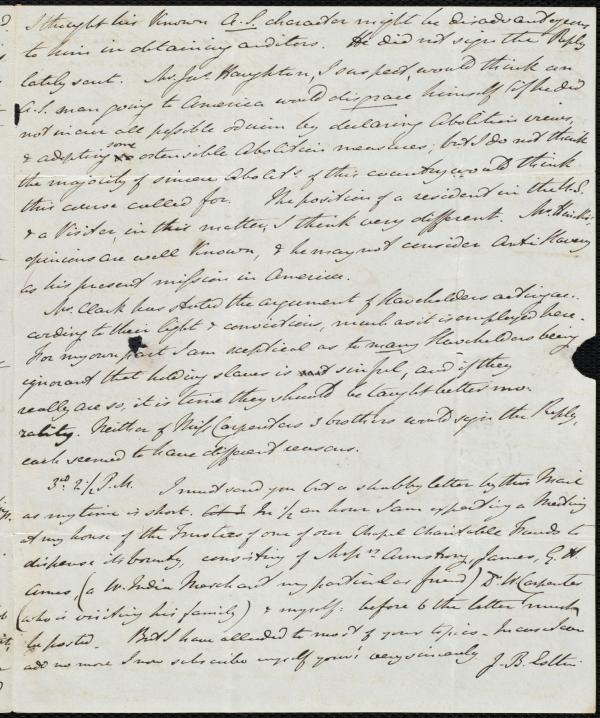 I thought his known A.S. character might be disadvantageous
to him in obtaining auditors. He did not sign the Reply
lately sent. Mr. Jas. Haughton, I suspect, would think an
A.S. man going to America would disgrace himself if he did
not incur all possible odium by declaring Abolition views,
& adopting some ostensible Abolition measures; but I do not think
the majority of sincere Abolits. of this country would think
this course called for. The position of a resident in the U.S.
& a Visitor, in this matter, I think very different. Mr.
opinions are well known, & he may not consider Anti Slavery
as his present mission in America.
Mr. Clark has stated the argument of Slaveholders acting ac-
cording to their light & convictions, much as it is employed here.
For my own part I am skeptical as to many Slaveholders being
ignorant that holding slaves is sinful, and if they
really are so, it is time they should be taught better mo-
rality. Neither of Miss Carpenters 3 brothers would sign the Reply,
each seemed to have different reasons.
3rd 2½ P.M. I must send you but a shabby letter by this Mail
as my time is short. In ½ an hour I am expecting a Meeting
at my house of the Trustees of one of our Chapel Charitable Funds to
dispense its bounty, consisting of Messrs Armstrong, James, G. H.
Ames, (a W. India Merchant my particular friend) Dr. W Carpenter
(who is visiting his family) & myself: before 6 the letter must
be posted. But I have alluded to most of your topics. In case I can
add no more I now subscribe myself yours very sincerely
J. B. Estlin